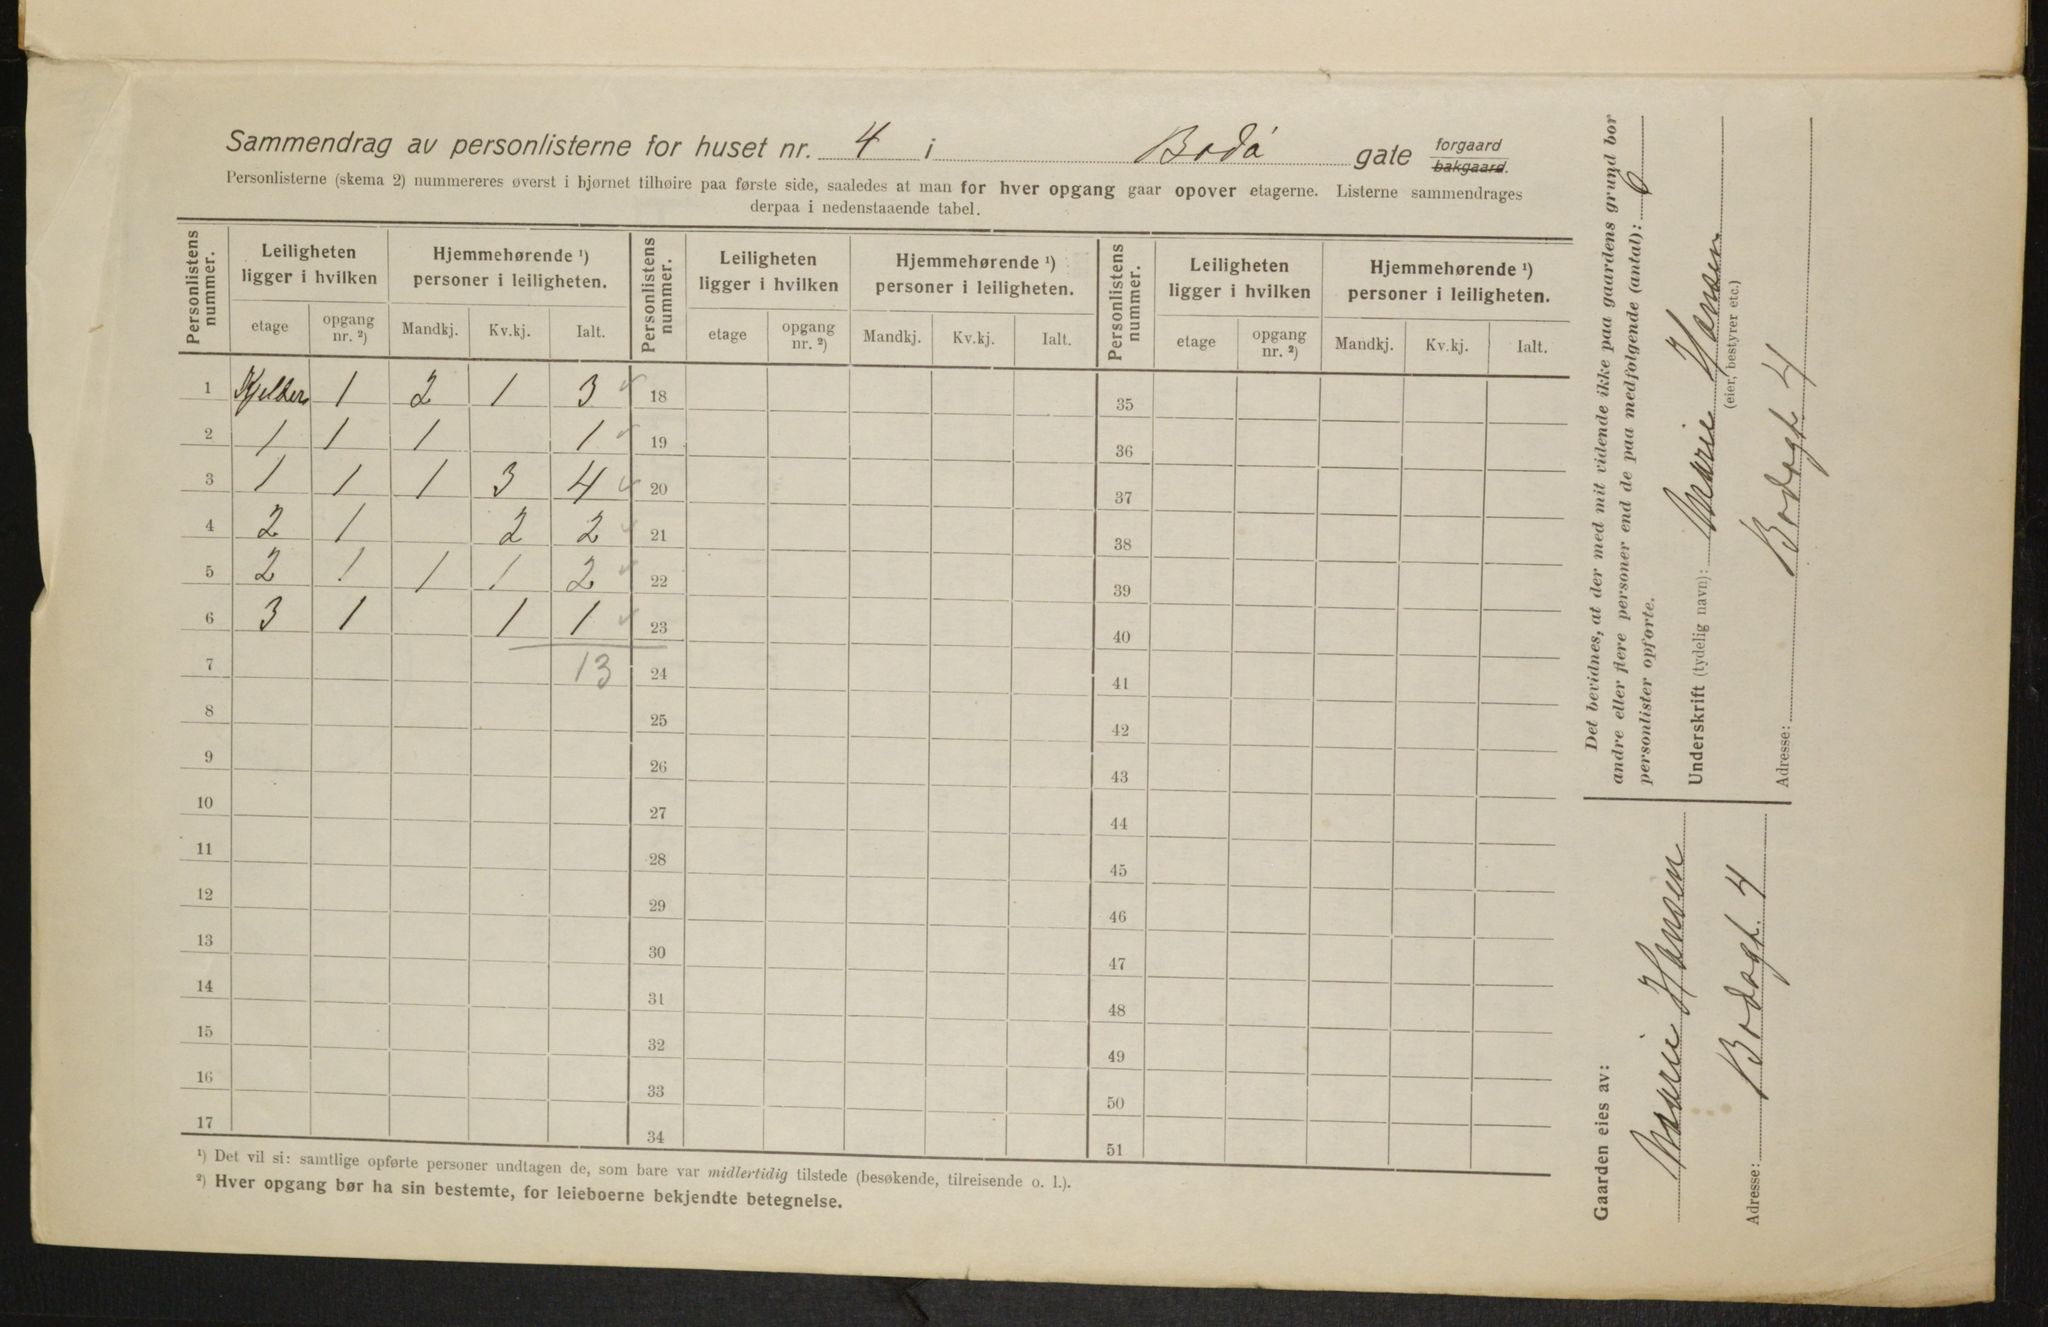 Sammendrag av personlisterne for huset nr. 4 i Bodø gate forgaard
bakgaard.
Personlisterne (skema 2) nummereres øverst i hjørnet tilhøire paa første side, saaledes at man for hver opgang gaar opover etagerne. Listerne sammendrages
derpaa i nedenstaaende tabel.
Personlistens nummer. Leiligheten ligger i hvilken Hjemmehørende ¹) personer i leiligheten. Personlistens nummer. Leiligheten ligger i hvilken Hjemmehørende ¹) personer i leiligheten. Personlistens nummer. Leiligheten ligger i hvilken Hjemmehørende ¹) personer i leiligheten.
etage opgang nr. ²) Mandkj. Kv.kj. Ialt. etage opgang nr. ²) Mandkj. Kv.kj. Ialt. etage opgang nr. ²) Mandkj. Kv.kj. Ialt.
1 Kjelder 1 2 1 3 18 35
2 1 1 1 1 19 36
3 1 1 1 3 4 20 37
4 2 1 2 2 21 38
5 2 1 1 1 2 22 39
6 3 1 1 1 23 40
7 13 24 41
8 25 42
9 26 43
10 27 44
11 28 45
12 29 46
13 30 47
14 31 48
15 32 49
16 33 50
17 34 51
¹) Det vil si: samtlige opførte personer undtagen de, som bare var midlertidig tilstede (besøkende, tilreisende o. l.).
²) Hver opgang bør ha sin bestemte, for leieboerne bekjendte betegnelse.
Det bevidnes, at der med mit vidende ikke paa gaardens grund bor
andre eller flere personer end de paa medfølgende (antal): 6
personlister opførte.
Underskrift (tydelig navn): Marie Hansen
(eier, bestyrer etc.)
Adresse: Bodøgt. 4
Gaarden eies av:
Marie Hansen
Adresse: Bodøgt. 4